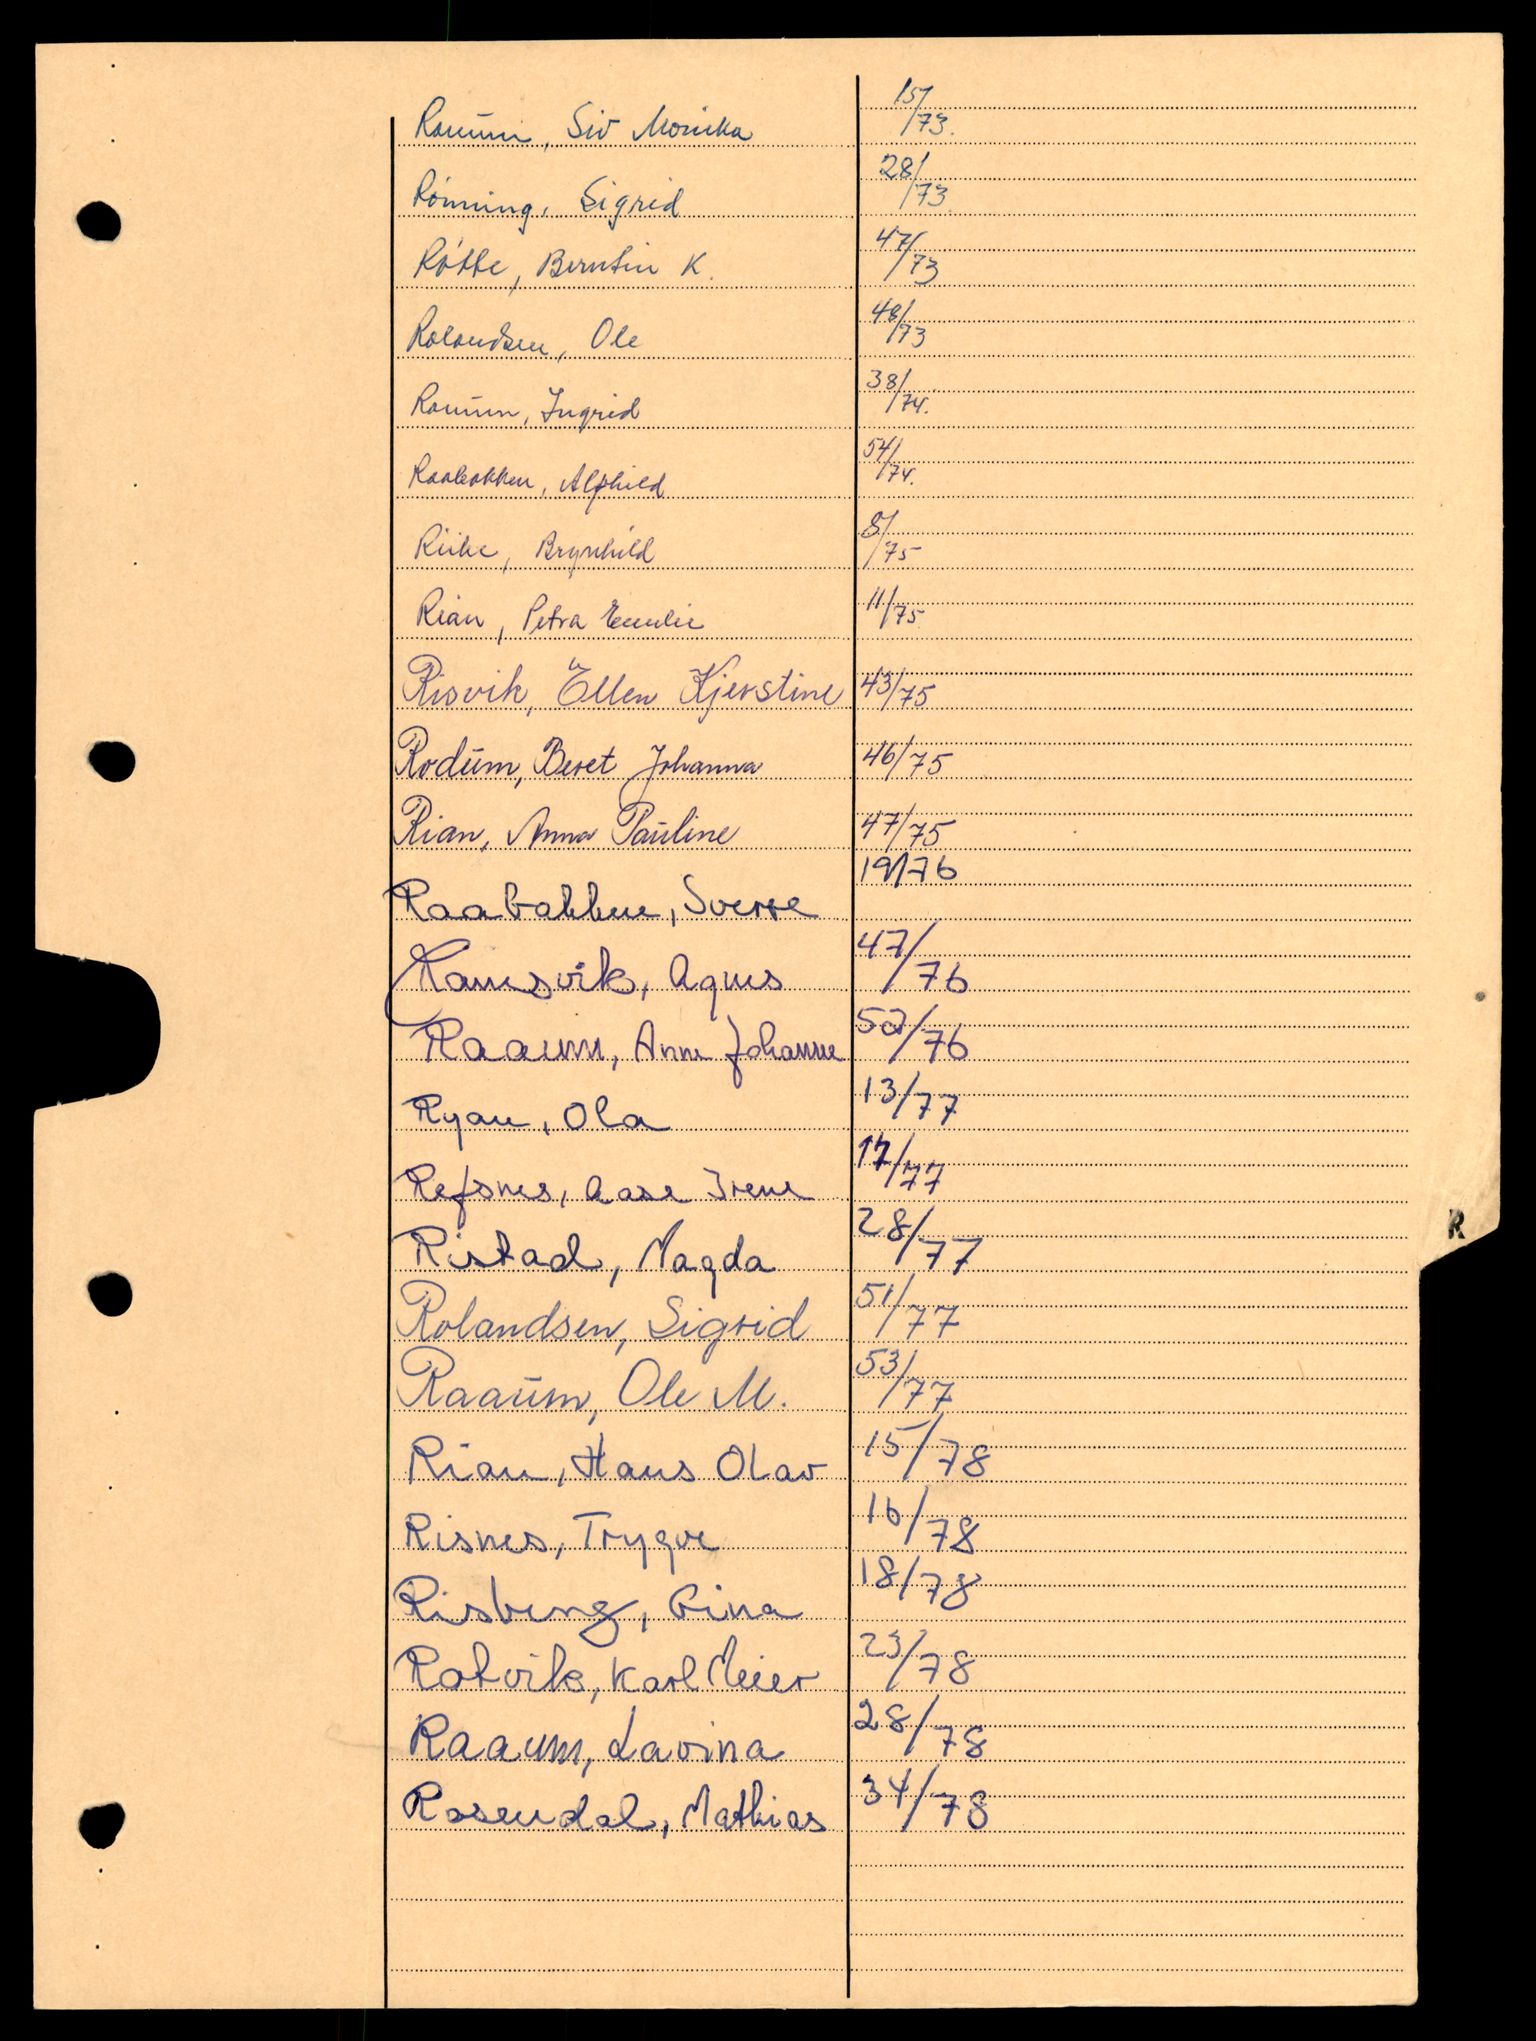 Raaum, Siv Monika 15/73.
Rönning, Sigrid 28/73
Røtte, Berntin K. 47/73
Rolandsen, Ole 48/73
Raaum, Ingrid 38/74.
Raabakken, Alfhild 54/74.
Riihe, Brynhild 8/75
Rian, Petra Emilie 11/75
Risvik, Ellen Kjerstine 43/75
Rodum, Beret Johanna 46/75
Rian, Anna Pauline 47/75
Raabakken, Sverre 19/76
Ramsvik, Agnes 47/76
Raaum, Anne Johanne 52/76
Ryan, Ola 13/77
Refsnes, Aase Irene 17/77
Ristad, Magda 28/77
R
Rolandsen, Sigrid 51/77
Raaum, Ole M. 53/77
Rian, Hans Olav 15/78
Risnes, Trygve 16/78
Risberg, Gina 18/78
Rotvik, Karl Meier 23/78
Raaum, Lavina 28/78
Rosendal, Mathias 34/78